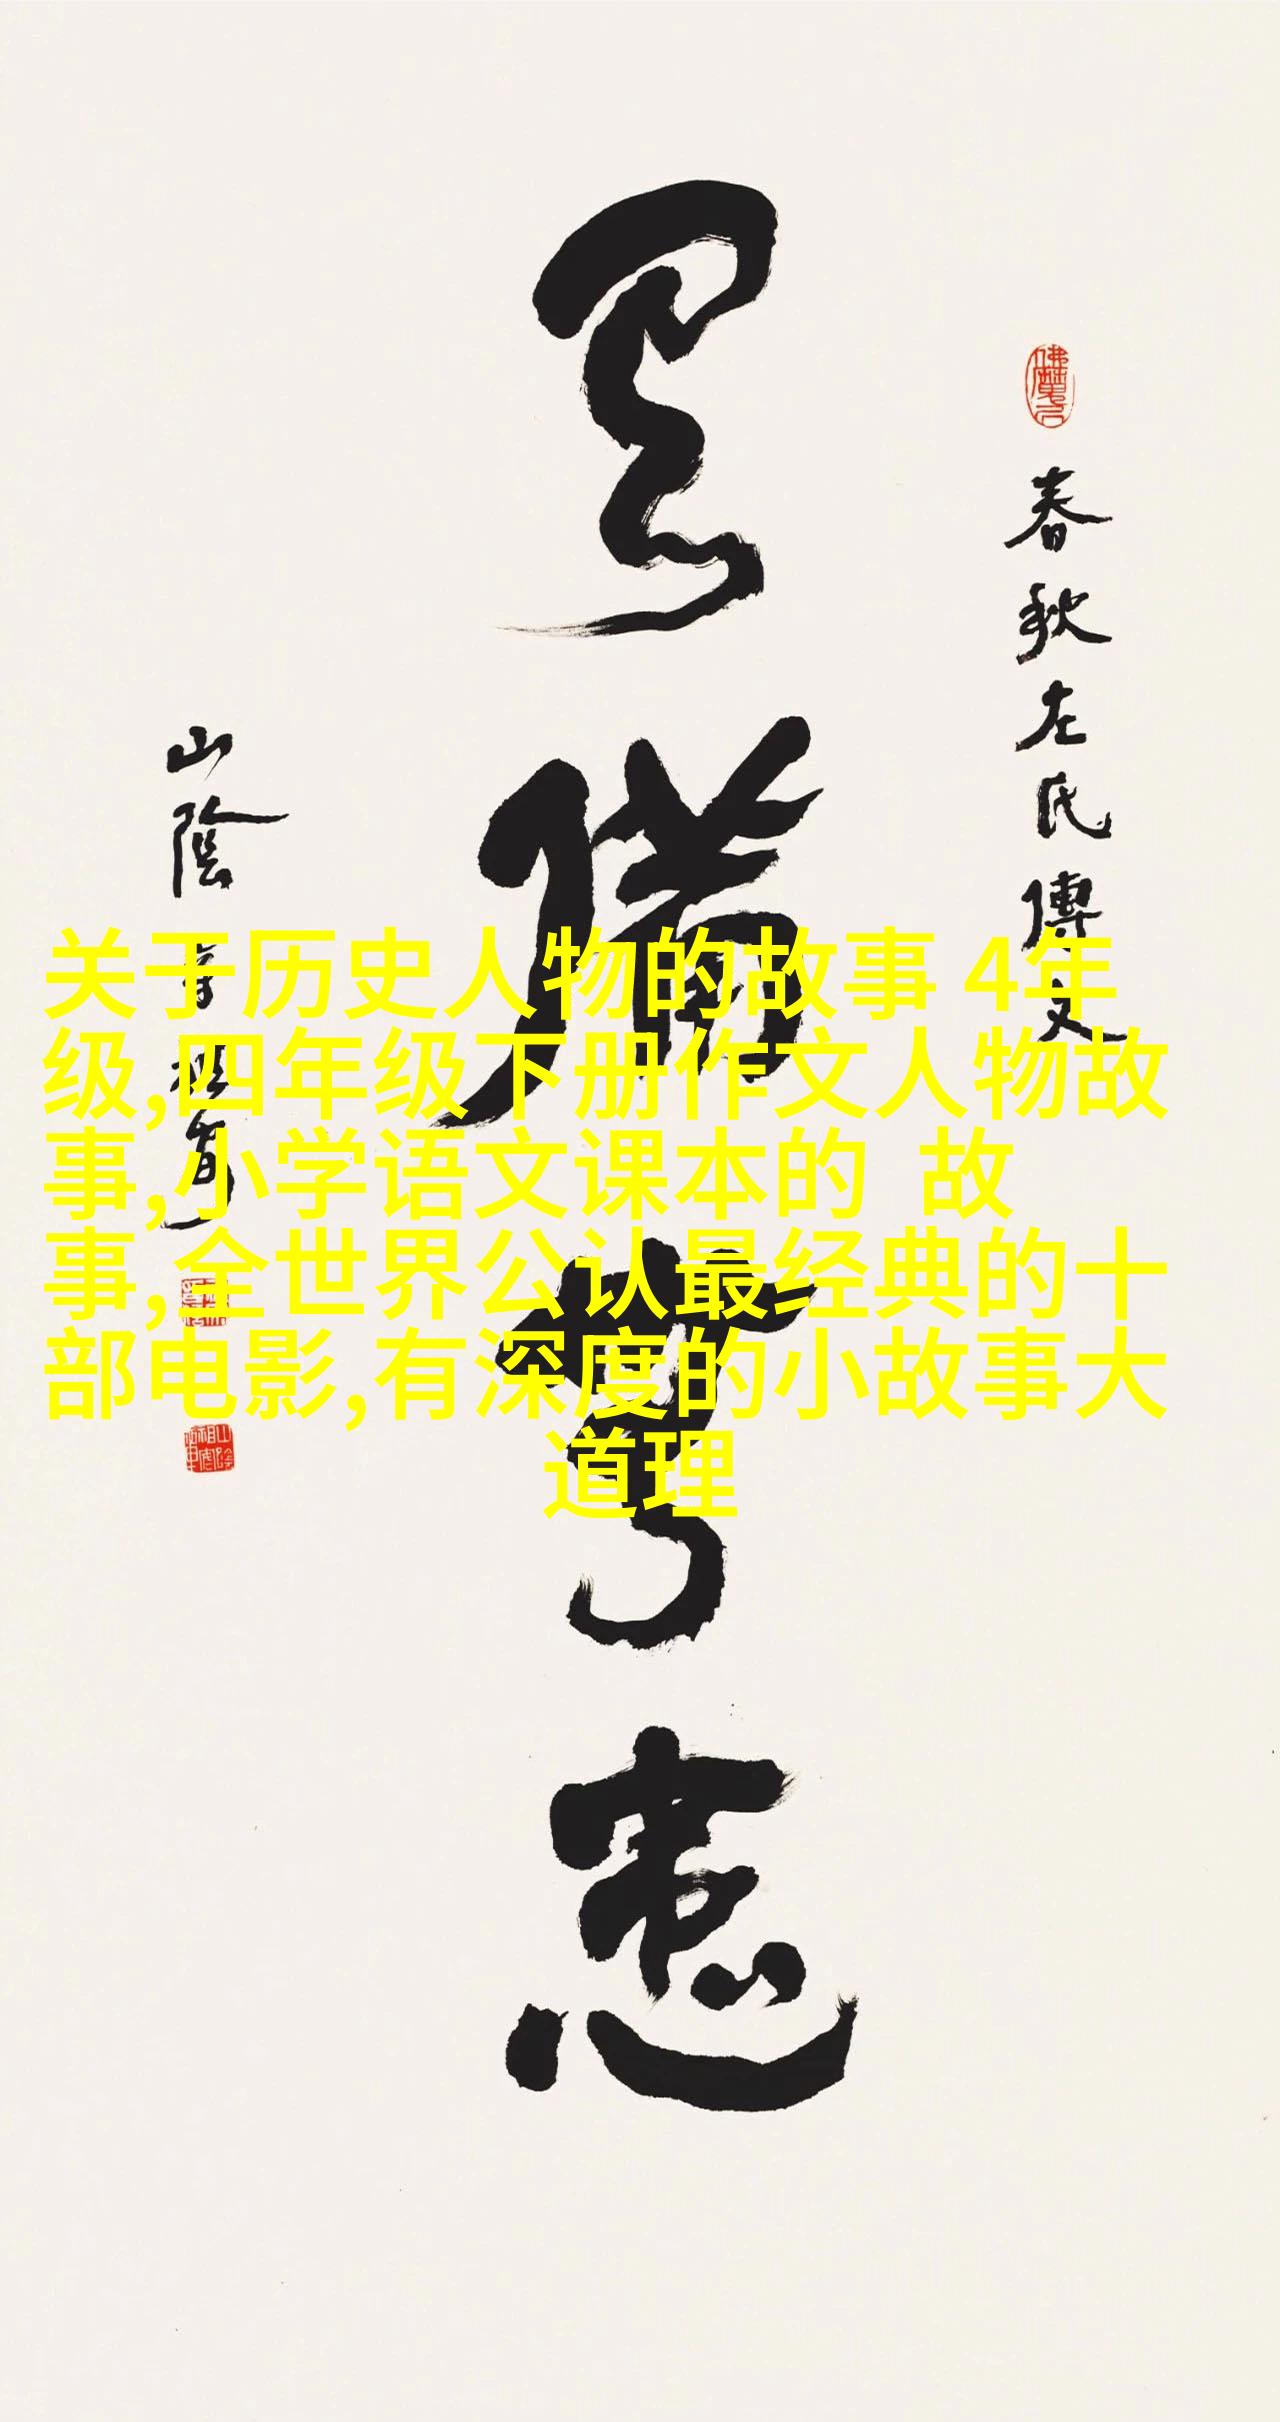 春秋左氏傳文
有備無患
山陰
关于历史人物的故事 4年
级,四年级下册作文人物故
事,小学语文课本的 故
事,全世界公认最经典的十
部电影,有深度的小故事大
道理